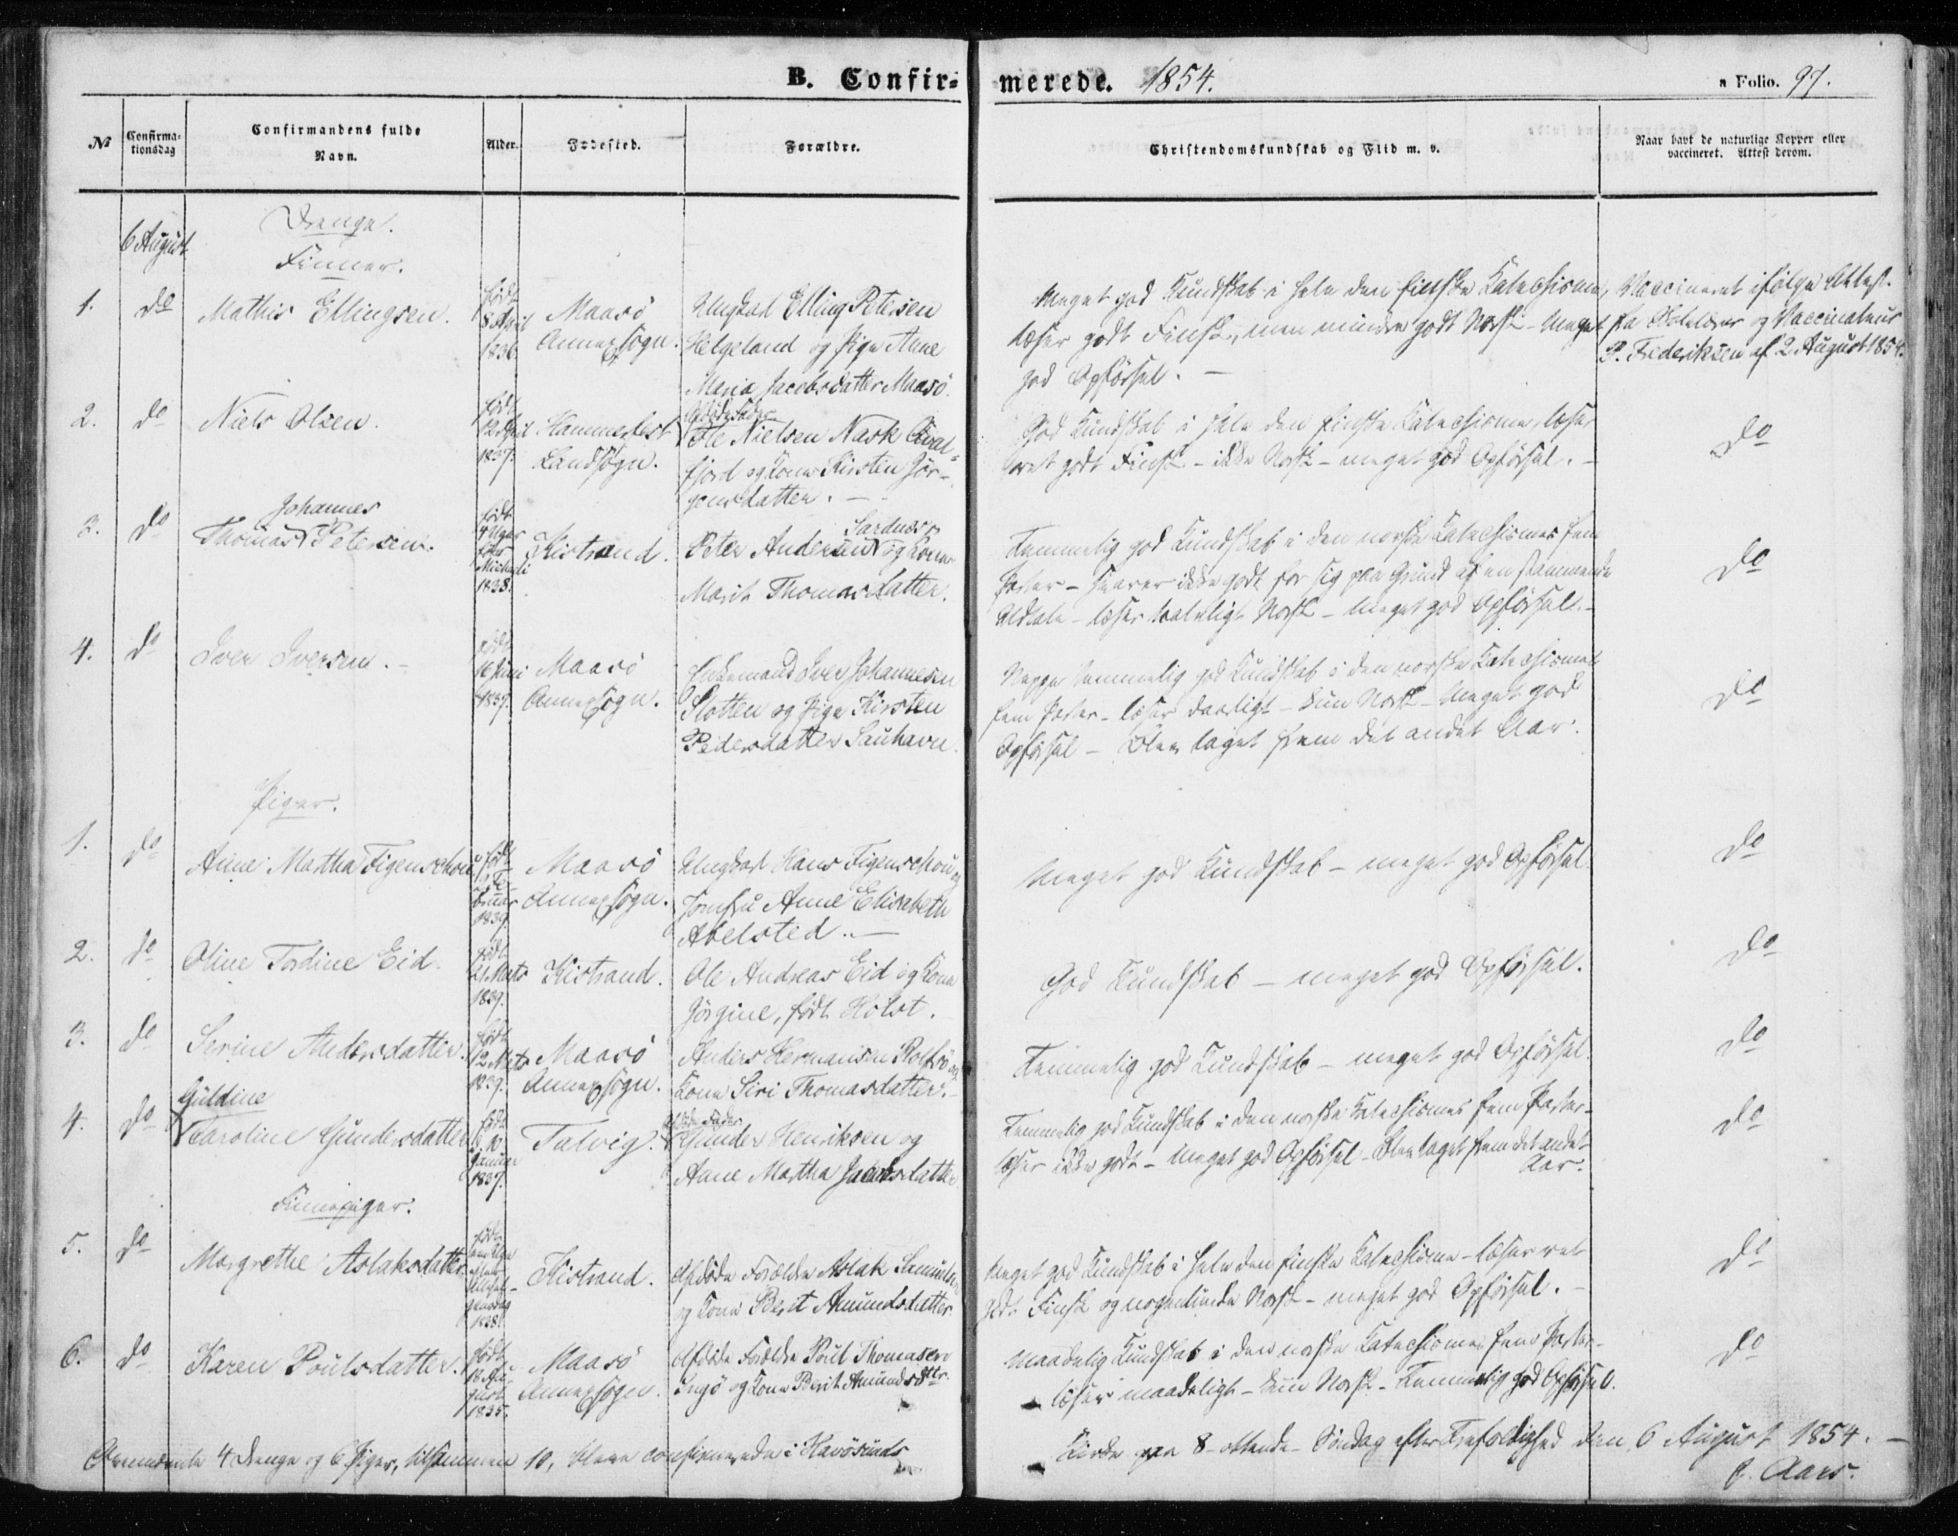 B. Confir-
merede. 1854.
a Folio. 97.
№
Confirma-
tionsdag
Confirmandens fulde
Navn.
Alder.
Fødested.
Forældre.
Christendomskundskab og Flid m. v.
Naar havt de naturlige Kopper eller
vaccineret. Attest derom.
6 August
Drenge.
Finner.
1.
do
Mathis Ellingsen.
født
8 April
1836.
Maasö
Annexsogn.
Ungkarl Elling Petersen
Helgeland og Pige Anne
Maria Jacobsdatter Maasö.
Meget god Kundskab i hele den finske Katechisme,
læser godt Finsk, men mindre godt Norsk - Meget
god Opförsel. -
Vaccineret ifölge Attest
fra Vaccinateur
P. Frederiksen af 2 August 1854.
2.
do
Niels Olsen.
født
12 April
1837.
Hammerfest
Landsogn.
Ole Nielsen Nask Qval-
fjord og Kone Kirsten Jör-
gensdatter. -
God Kundskab i hele den finske Katechisme, læser
ret godt Finsk - ikke Norsk - meget god Opförsel. -
do
3.
do
Johannes
Thomas Petersen.
født
Uger
efter
Micheli
1838.
Kistrand.
Sardnæs
Peter Andersen og Kone
Marit Thomasdatter.
Temmelig god Kundskab i den norske Katechismes fem
Parter - svarer ikke godt for sig paa Grund af en stammende
Udtale - læser Norsk - Meget god Opförsel. -
do
4.
do
Iver Iversen. -
født
16 Juni
1839.
Maasö
Annexsogn.
Enkemand Iver Johannesen
Slotten og Pige Kirsten
Pedersdatter Sauhavn.
Neppe temmelig god Kundskab i den norske Katechismes
fem Parter - læser daarligt - kun Norsk - Meget god
Opförsel - Blev taget frem det andet Aar.
do
Piger.
1.
do
Anne Martha Figenschou
født
Fe-
bruar
1839.
Maasö
Annexsogn.
Ungkarl Hans Figenschou og
Jomfru Anne Elisabeth
Abelsted. -
Meget god Kundskab - meget god Opförsel
do
2.
do
Oline Tordine Eid.
født
21 Marts
1839.
Kistrand.
Ole Andreas Eid og Kone
Jörgine, født Holst.
God Kundskab - meget god Opförsel.
do
3.
do
Serine Andersdatter.
født
12 Marts
1839.
Maasö
Annexsogn.
Anders Hermansen Rolfsö og
Kone Siri Thomasdatter. -
Temmelig god Kundskab - meget god Opförsel.
do
4.
do
Guldine
Caroline Gundersdatter
født
Januar
1837.
Talvig.
Gunder Henriksen og
Anne Martha Jacobsdatter
Temmelig god Kundskab i den norske Katechismes fem Parter -
læser ikke godt - Meget god Opförsel - Blev taget frem det andet
Aar.
do
Finnepiger.
5.
do
Margrethe Aslaksdatter
født
1838.
Kistrand.
Afdöde Forældre Aslak Samuelsen
og Kone Berit Amundsdatter
Meget god Kundskab i hele den finske Katechisme - læser ret
godt Finsk og nogenlunde Norsk - meget god Opförsel. -
do
6.
do
Karen Poulsdatter.
født
18 Au-
gust
1835.
Maasö
Annexsogn.
Afdöde Forældre Poul Thomasen
Ingö og Kone Berit Amundsdttr.
Maadelig Kundskab i den norske Katechismes fem Parter -
læser maadeligt - kun Norsk - Temmelig god Opförsel.
do
4 Drenge og 6 Piger, tilsammen 10, bleve confirmerede i Havösunds
Kirke paa 8 - ottende - Söndag efter Trefoldighed den 6 August 1854. -
Aars.